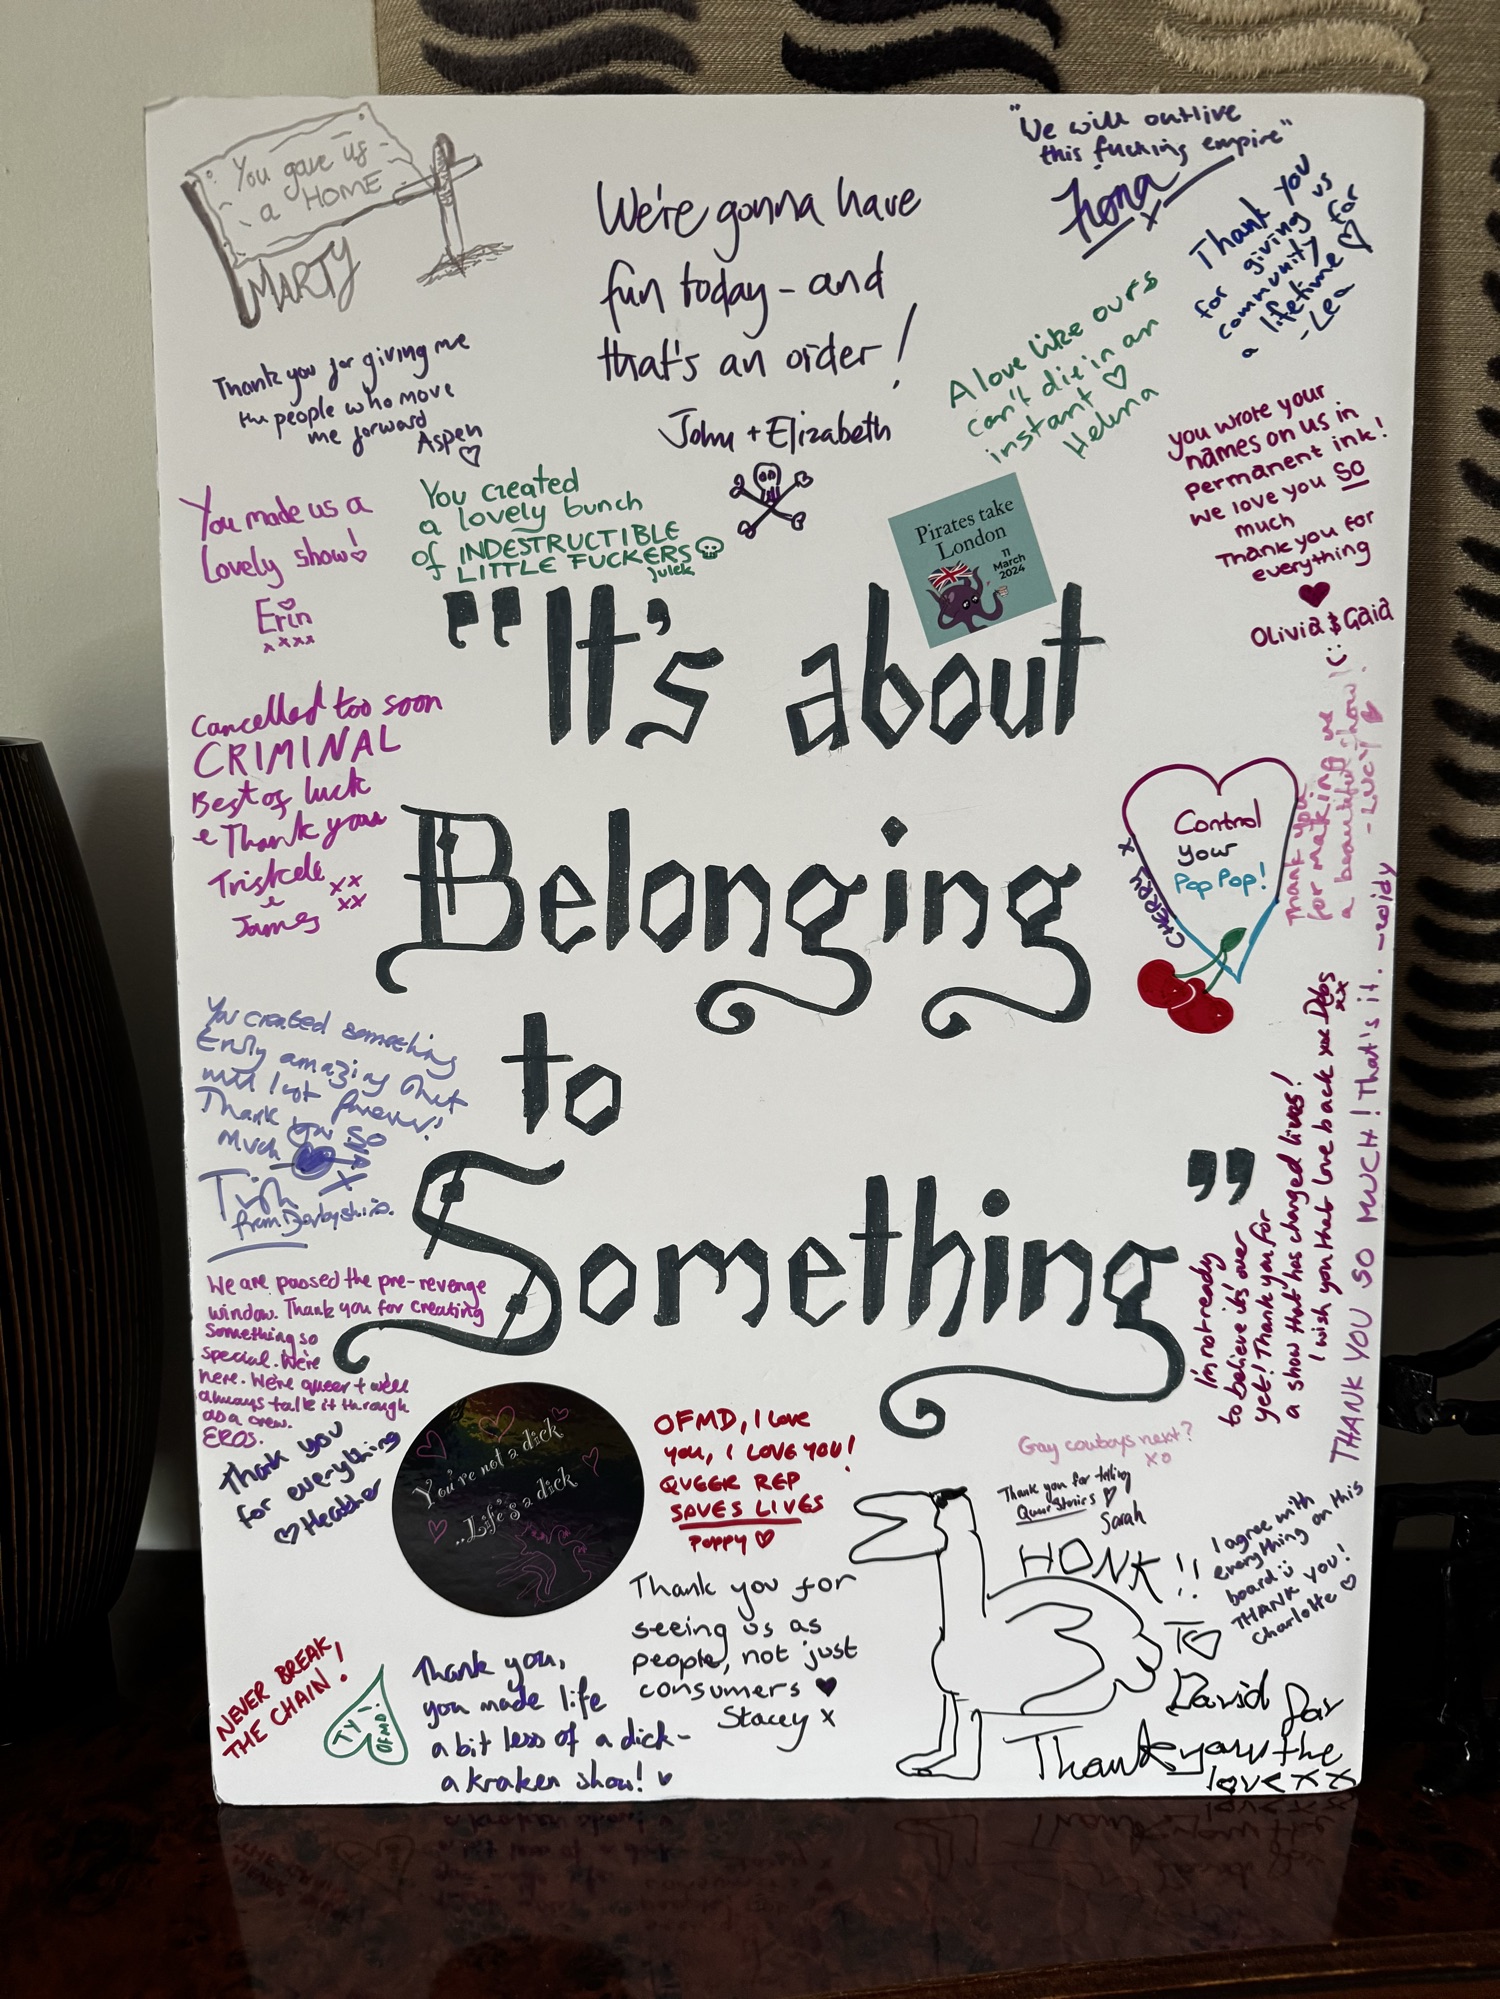 You gave us
a HOME
MARTY
We're gonna have
fun today - and
that's an order!
John + Elizabeth
"We will outlive
this fucking empire"
Fiona
x
Thank you
for giving us
community for
a lifetime ♡
- Lea
Thank you for giving me
the people who move
me forward
Aspen
♡
A love like ours
can't die in an
instant ♡
Helena
You made us a
lovely show!
Erin
xxxx
You created
a lovely bunch
of INDESTRUCTIBLE
LITTLE FUCKERS
Julek
Pirates take
London
11
March
2024
you wrote your
names on us in
permanent ink!
We love you SO
much
Thank you for
everything
♥
Olivia & Gaia
:)
"It's about
Belonging
to
Something"
Cancelled too soon
CRIMINAL
Best of luck
& Thank you
Triskele xx
& xx
James
Control
your
Pop Pop!
CHERRY x
Thank you
for making us
a beautiful show!
- LUCY ♥
THANK YOU SO MUCH! That's it. -
You created something
truly amazing that
will last forever!
Thank you SO
Much
x
Trish
from Derbyshire.
I'm not ready
to believe it's over
yet! Thank you for
a show that has changed lives!
I wish you that love back xxx Debs
xx
We are passed the pre-revenge
window. Thank you for creating
Something so
special. We're
here. We're queer + we'll
always talk it through
as a crew.
EROS.
Thank you
for everything
♡ Heather
You're not a dick
..Life's a dick
OFMD, I love
you, I LOVE YOU!
QUEER REP
SAVES LIVES
Poppy ♡
Gay cowboys next?
xo
Thank you for telling
Queer Stories ♡
Sarah
HONK!!
I agree with
everything on this
board :)
THANK YOU!
Charlotte ♡
Thank you for
seeing us as
people, not just
consumers ♥
Stacey x
NEVER BREAK
THE CHAIN!
TY
OFMD!
Thank you,
you made life
a bit less of a dick -
a kraken show! ♥
To
David
for
Thank you the
love x x